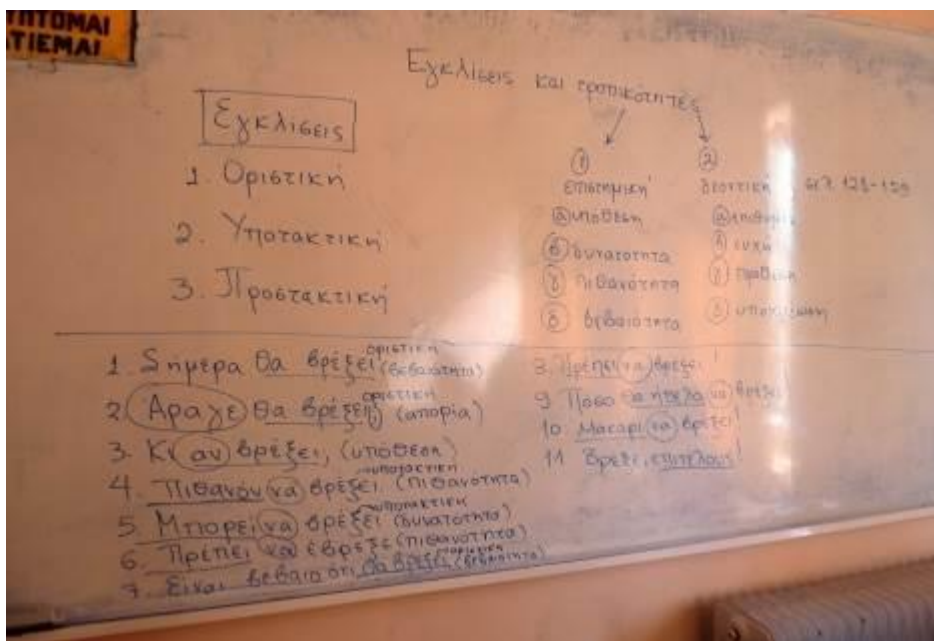 ΠΤΟΜΑΙ
ΤΙΕΜΑΙ
Εγκλίσεις και τροπικότητες
Εγκλίσεις
1. Οριστική
2. Υποτακτική
3. Προστακτική
① επιστημική
ⓐ υπόθεση
ⓑ δυνατότητα
ⓖ πιθανότητα
ⓓ βεβαιότητα
② δεοντική σελ 128-129
ⓐ επιθυμία
ευχή
γ πρόθεση
δ υποχρέωση
1 Σήμερα θα βρέξει οριστική (βεβαιότητα)
2 Άραγε θα βρέξει; οριστική (απορία)
3. Κι αν βρέξει, (υπόθεση)
4. Πιθανόν να βρέξει υποτακτική (πιθανότητα)
5. Μπορεί να βρέξει υποτακτική (δυνατότητα)
6. Πρέπει να έβρεξε (πιθανότητα)
7. Είναι βέβαιο ότι θα βρέξει οριστική (βεβαιότητα)
8. Πρέπει να βρέξει!
9 Πόσο θα ήθελα να βρέξει
10 Μακάρι να βρέξει!
11 Βρέξε, επιτέλους!